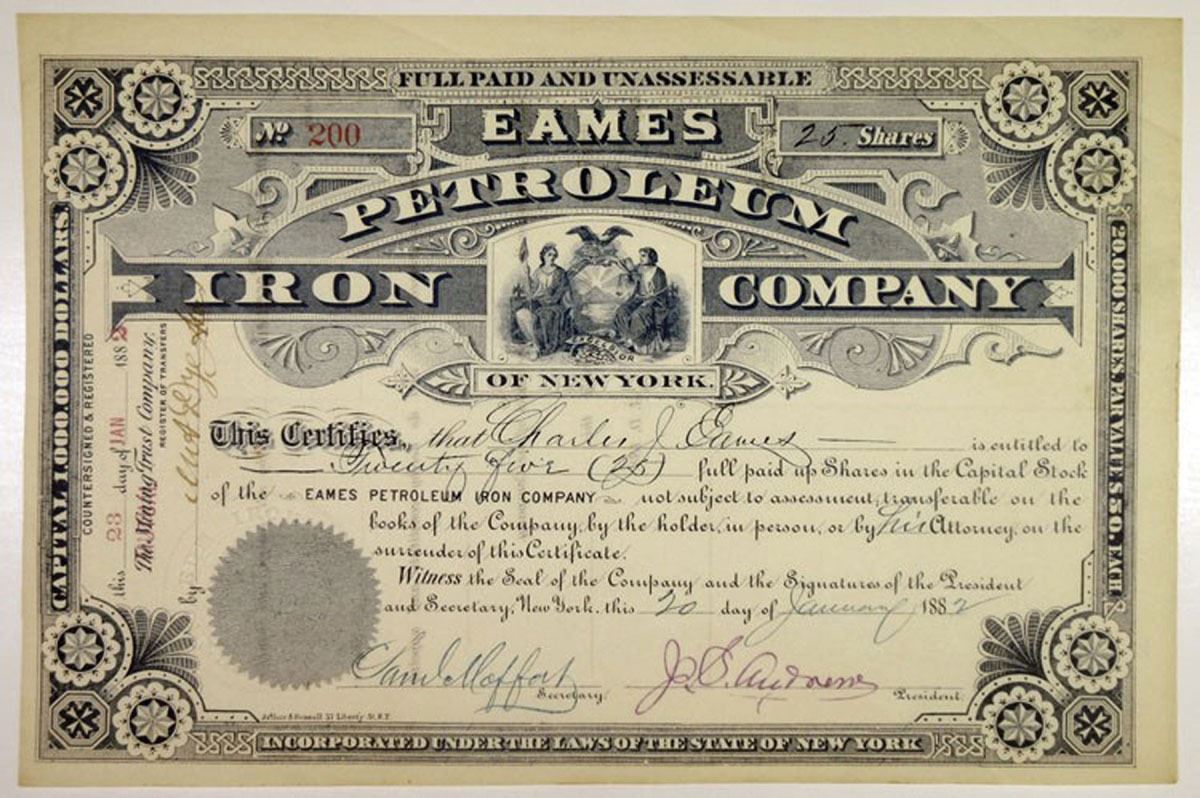 FULL PAID AND UNASSESSABLE
No 200
EAMES
25. Shares
PETROLEUM
IRON COMPANY
EXCELSIOR
OF NEW YORK.
CAPITAL 1,000,000 DOLLARS.
COUNTERSIGNED & REGISTERED
this 23 day of JAN 1882
Trust Company,
REGISTER OF TRANSFERS
by
20,000 SHARES, PAR VALUE $50. EACH
This Certifies, that Charles J Eames is entitled to
Twenty five (25) full paid up Shares in the Capital Stock
of the EAMES PETROLEUM IRON COMPANY not subject to assessment, transferable on the
books of the Company, by the holder, in person, or by his Attorney, on the
surrender of this Certificate.
Witness the Seal of the Company and the Signatures of the President
and Secretary, New York, this 20 day of January 1882
Secretary.
President.
33 Liberty St. N.Y.
INCORPORATED UNDER THE LAWS OF THE STATE OF NEW YORK